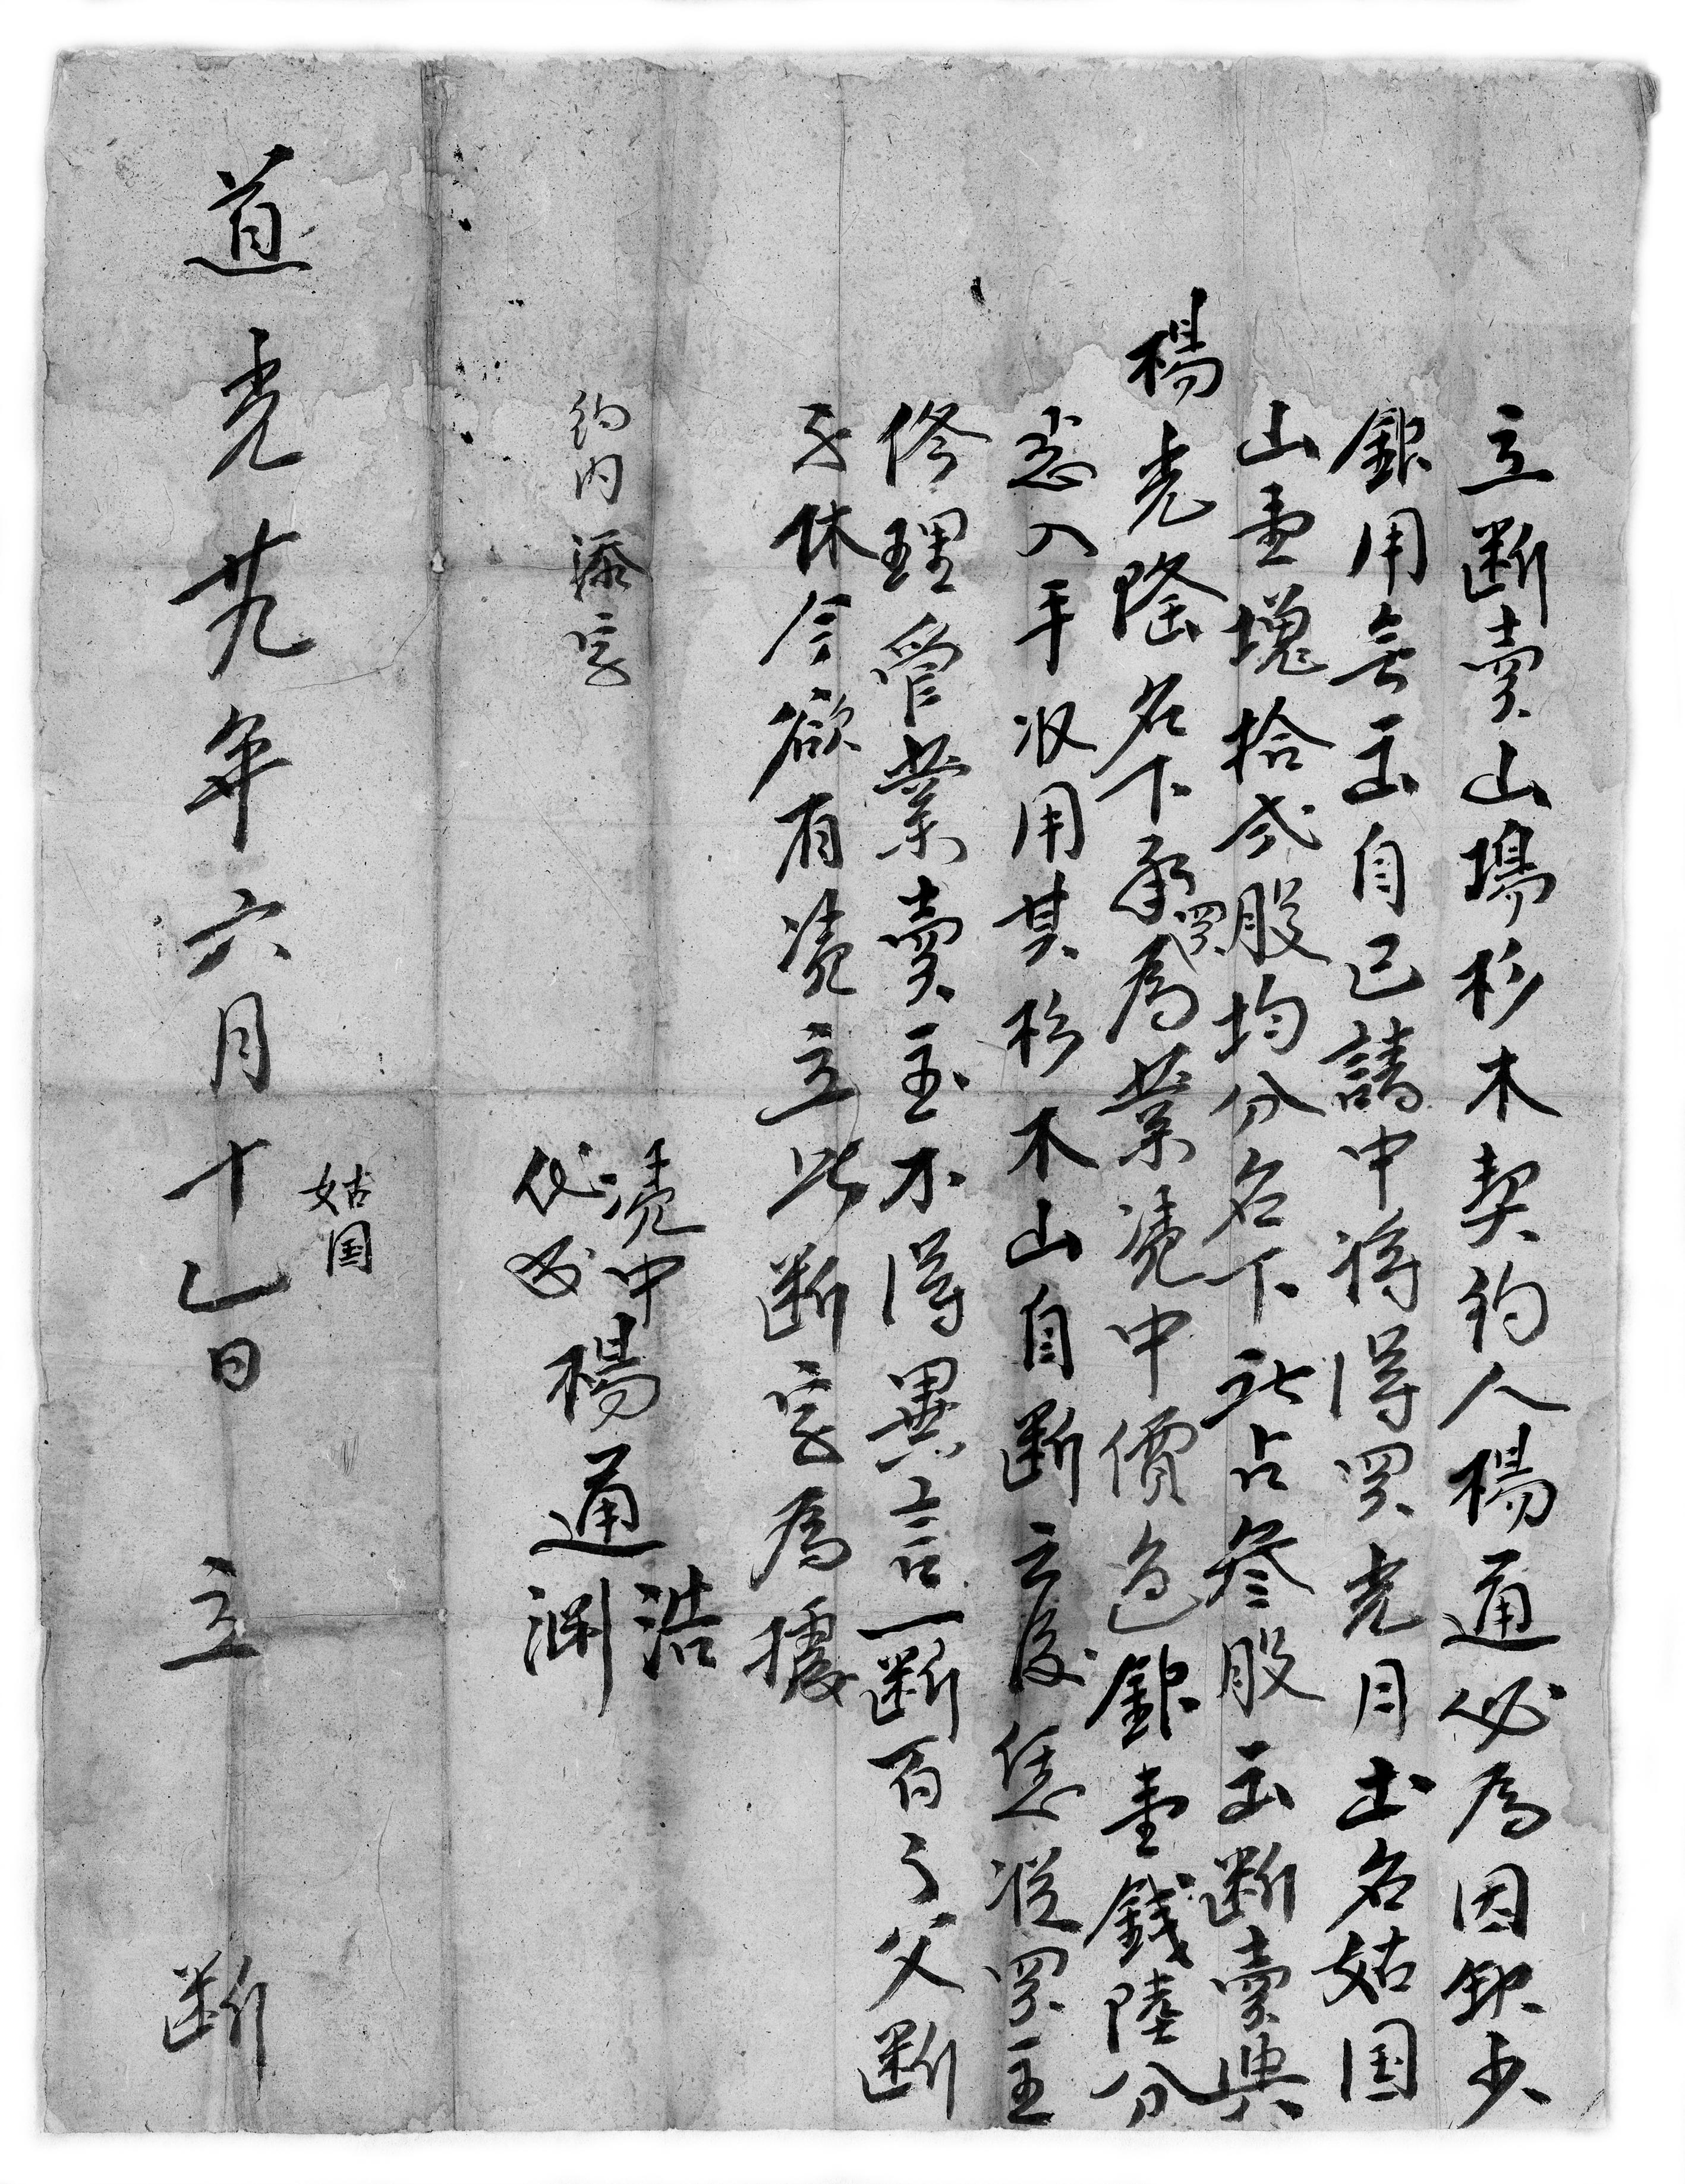 立断賣山場杉木契約人楊通必為因缺少
銀用無出自己請中将得買光月土名姑国
山壹塊拾弍股均分名下所占叁股出断賣與
楊光隆名下承買為業凴中價色銀壹錢陸分
悉入手收用其杉木山自断之後任從買主
修理管業賣主不得異言一断百了父断
子休今欲有凴立此断字為據
約内添字
凴中 楊通浩
代筆 渊
姑国
道光廿九年六月十乙日 立 断